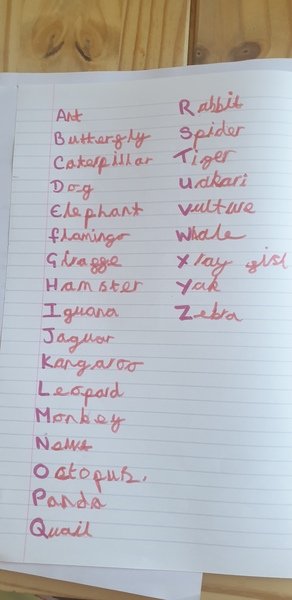 Ant
Butterfly
Caterpillar
Dog
Elephant
flamingo
Giraffe
Hamster
Iguana
Jaguar
Kangaroo
Leopard
Monkey
Octopus.
Panda
Quail
Rabbit
Spider
Tiger
Uakari
Vulture
Whale
Xray fish
Yak
Zebra